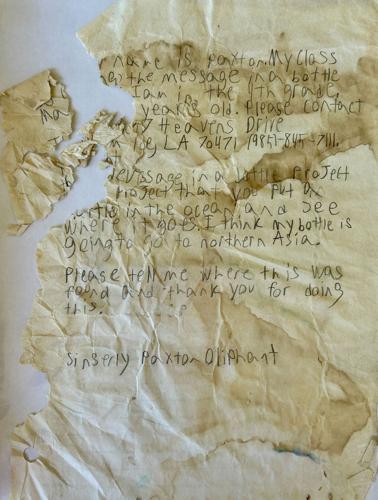 name is Paxton. My class
the message in a bottle
I am in the 9th grade,
years old. Please contact
Heavens Drive
LA 70471 (985)-845-7111.
message in a bottle Project
Project that you put a
bottle in the ocean and see
where it goes. I think my bottle is
going to go to northern Asia.
Please tell me where this was
found and thank you for doing
this.
Sinserly Paxton Oliphant